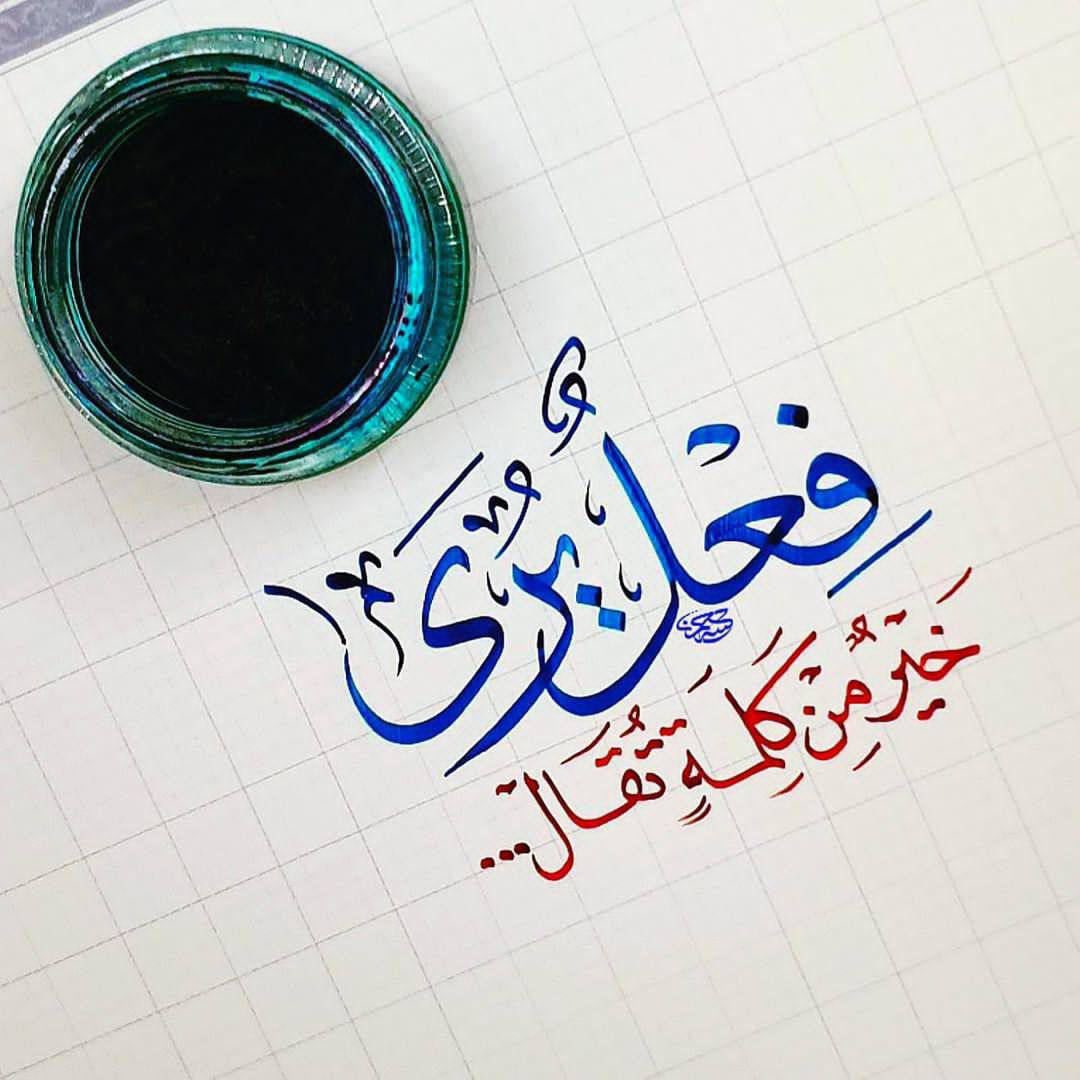 فِعْلٌ يُرَى
خَيْرٌ مِنْ كَلِمَةٍ تُقَالْ...